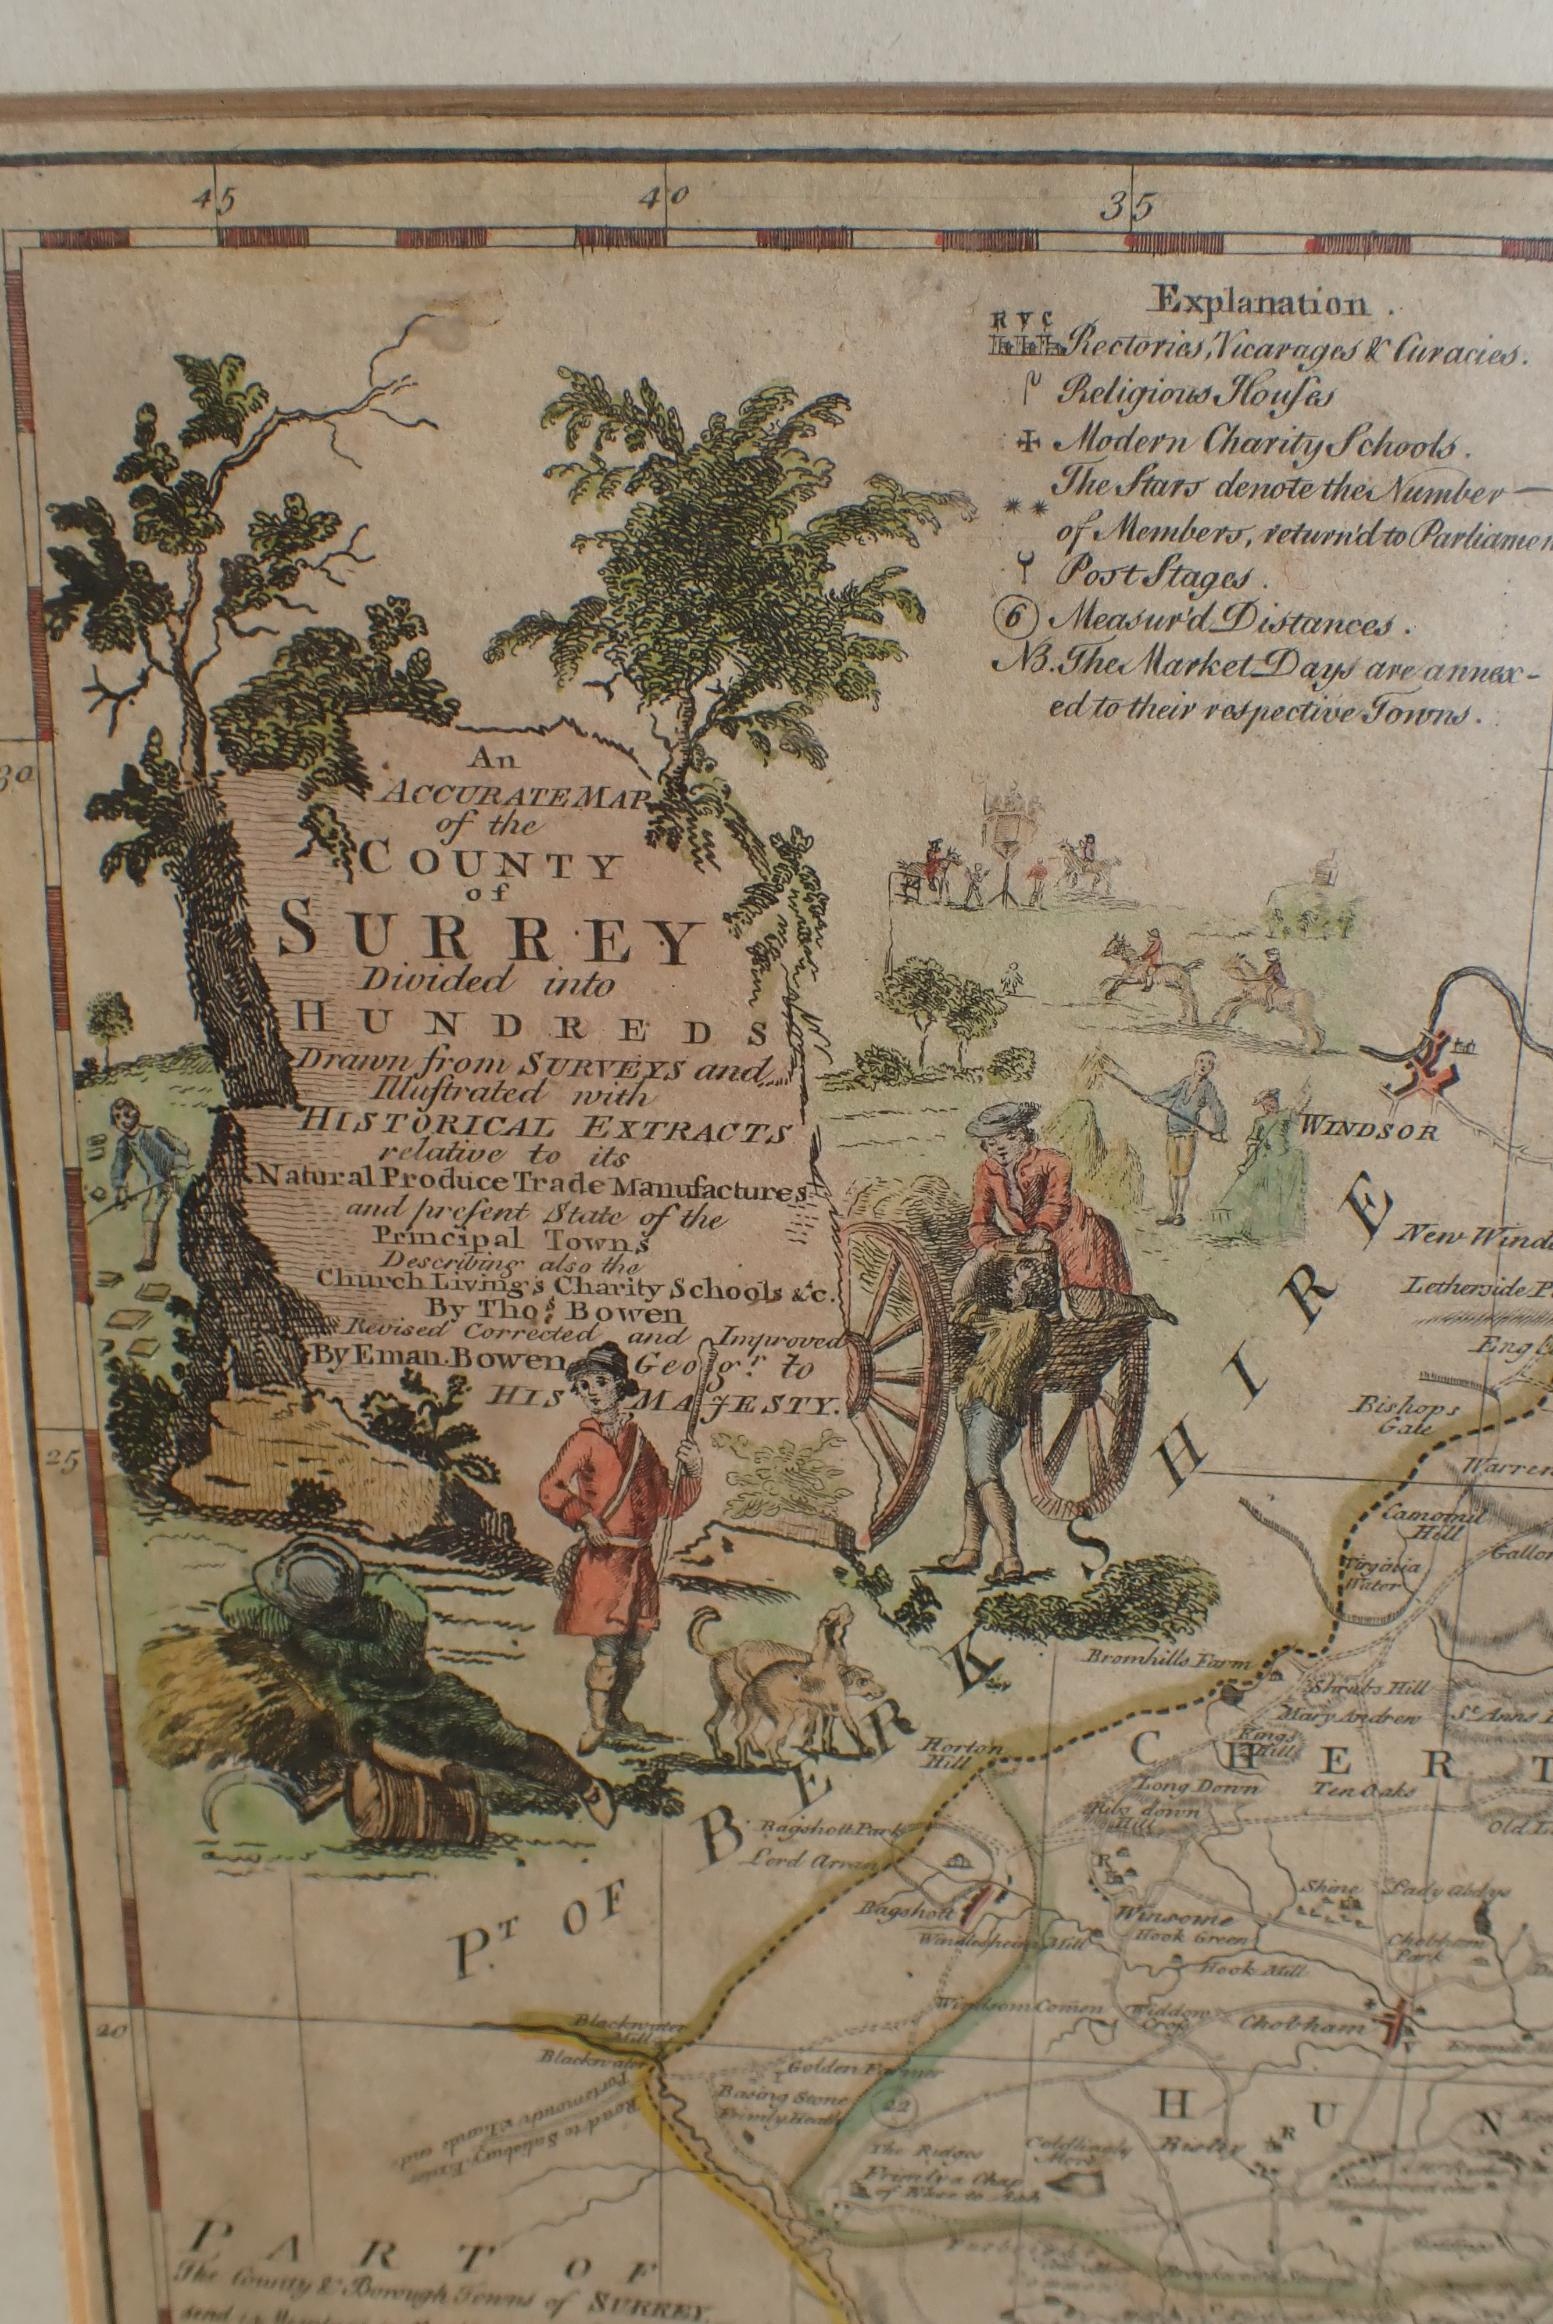 45
40
35
Explanation.
R V C
Rectories, Vicarages & Curacies.
Religious Houſes
Modern Charity Schools.
The Stars denote the Number
of Members, return'd to Parliamen
Post Stages.
6 Measur'd Distances.
NB. The Market Days are annex-
ed to their respective Towns.
30
An
ACCURATE MAP
of the
COUNTY
of
SURREY
Divided into
HUNDREDS
Drawn from SURVEYS and
Illuſtrated with
HISTORICAL EXTRACTS
relative to its
Natural Produce Trade Manufactures
and preſent State of the
Principal Towns
Describing also the
Church Livings Charity Schools &c.
By Thos. Bowen
Revised Corrected and Improved
By Eman. Bowen Geogr. to
HIS MAJESTY.
WINDSOR
New Winds
Letherside P.
Bishops
Gate
Warren
25
Camomil
Hill
Gallo
Virginia
Water
Bromhills Farm
Shrubs Hill
Mary Andrew
St. Anns
Kings
Hill
Horton
Hill
PT OF BERKSHIRE
CHERT
Long Down
Ten Oaks
Ribs down
Hill
Old
Bagshott Park
Lord Arran
Bagshott
R
Shine
Lady Abdys
Winsome
Hook Green
Windlesheim Mill
Chobham
Park
Hook Mill
Windsom Comen
Widdow
Crop
Chobham
V
20
Blackwater
Mill
Blackwater
Golden Farmer
Basing Stone
Frimly Heath
22
Road to Salisbury Exter
Portsmouth & Lands end
HUN
R
Bisley
The Ridges
Coldlingly
More
Frimly a Chap.
of Ease to Ash
PART OF
The County & Borough Towns of SURREY